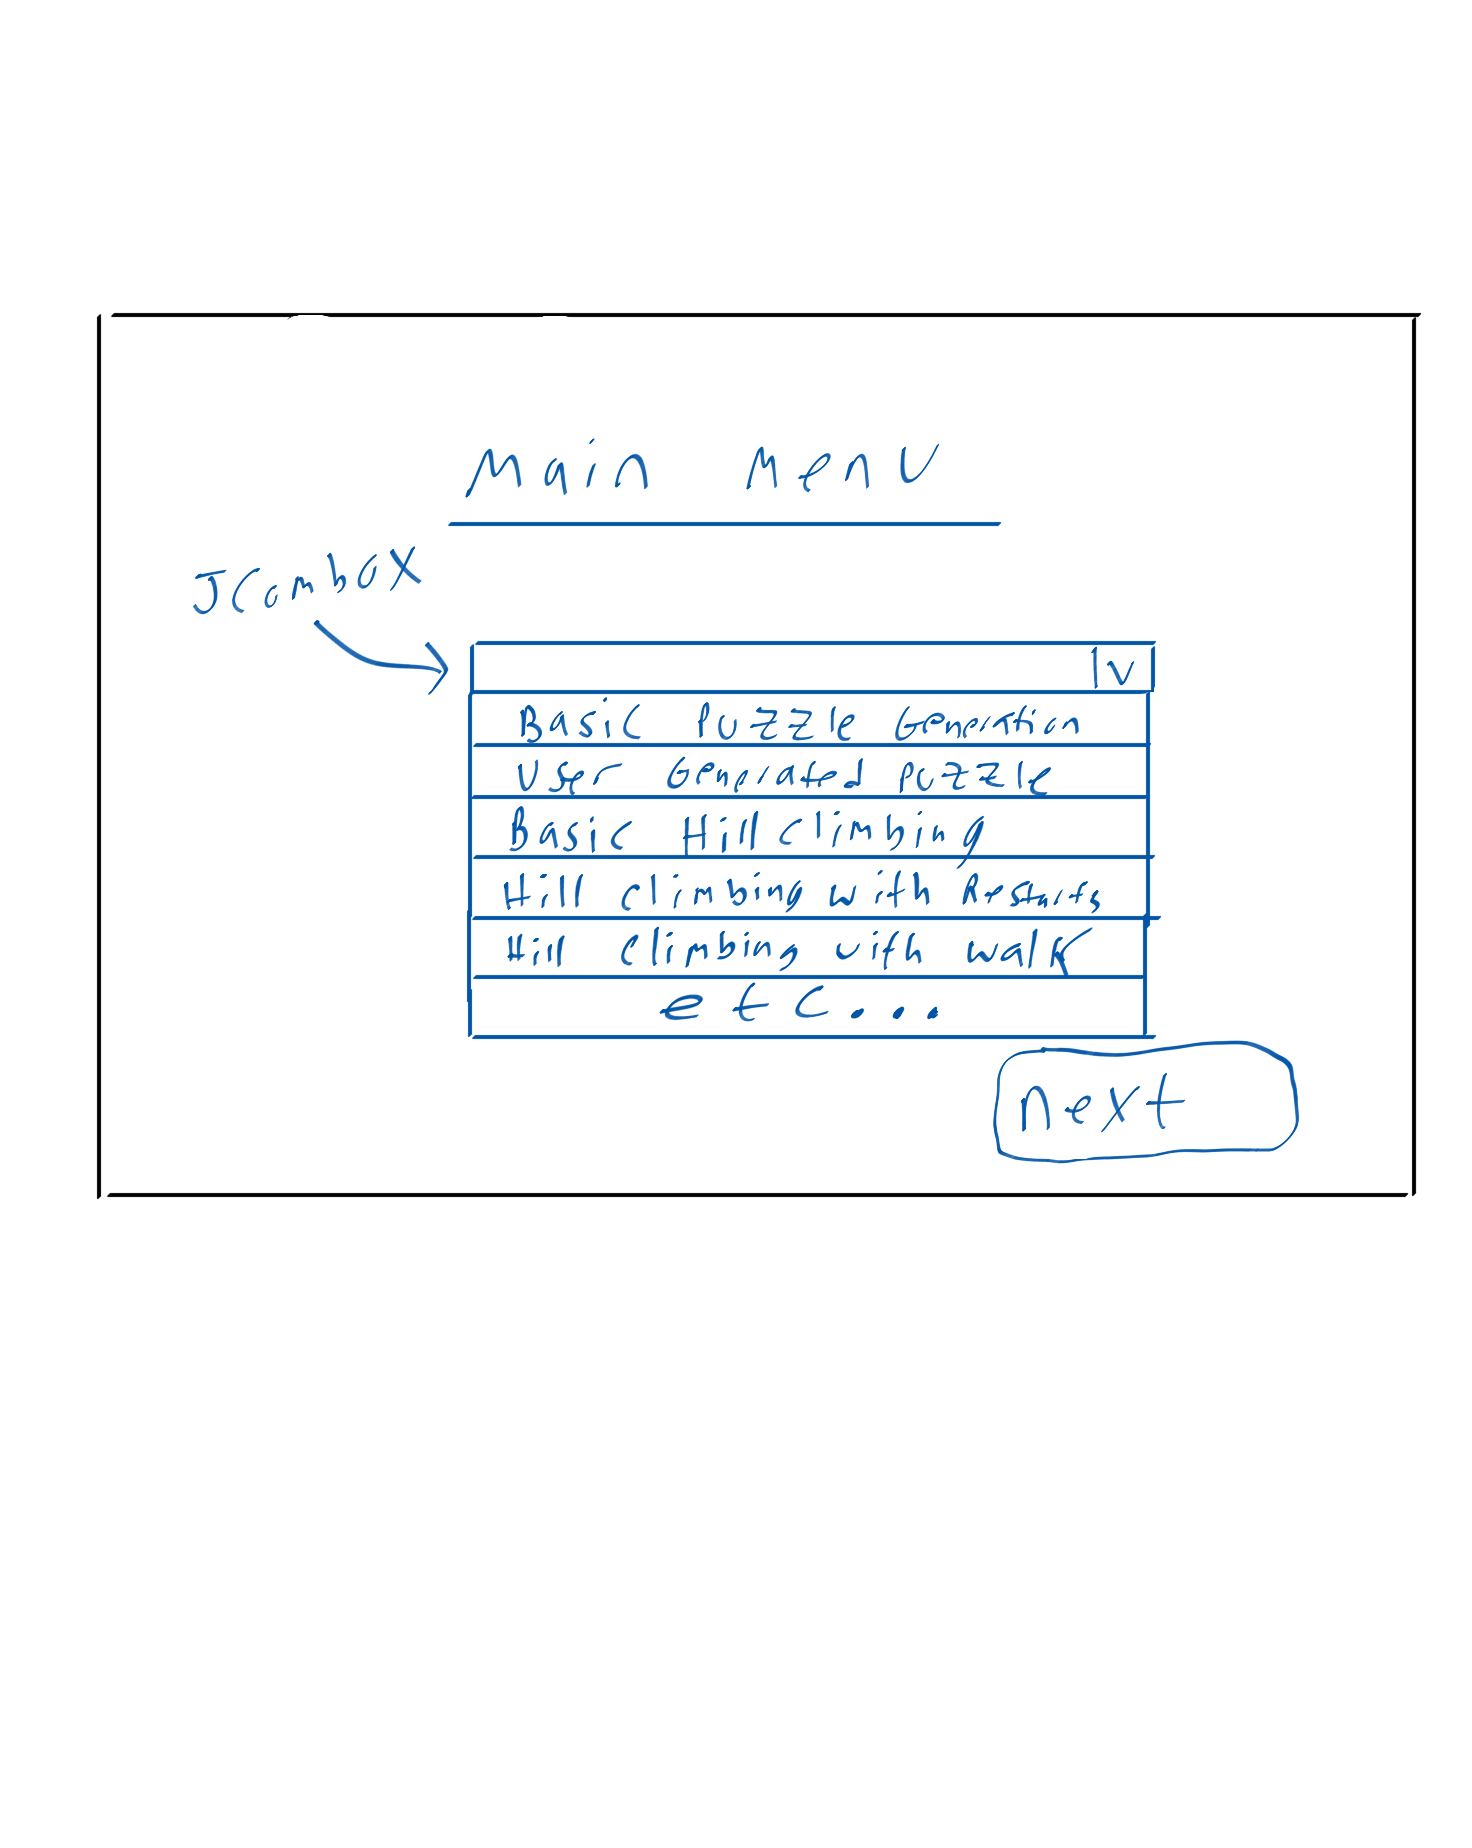 Main Menu
JCombox
Basic Puzzle Generation
User Generated Puzzle
Basic Hill climbing
Hill climbing with Restarts
Hill climbing with walk
etc...
next